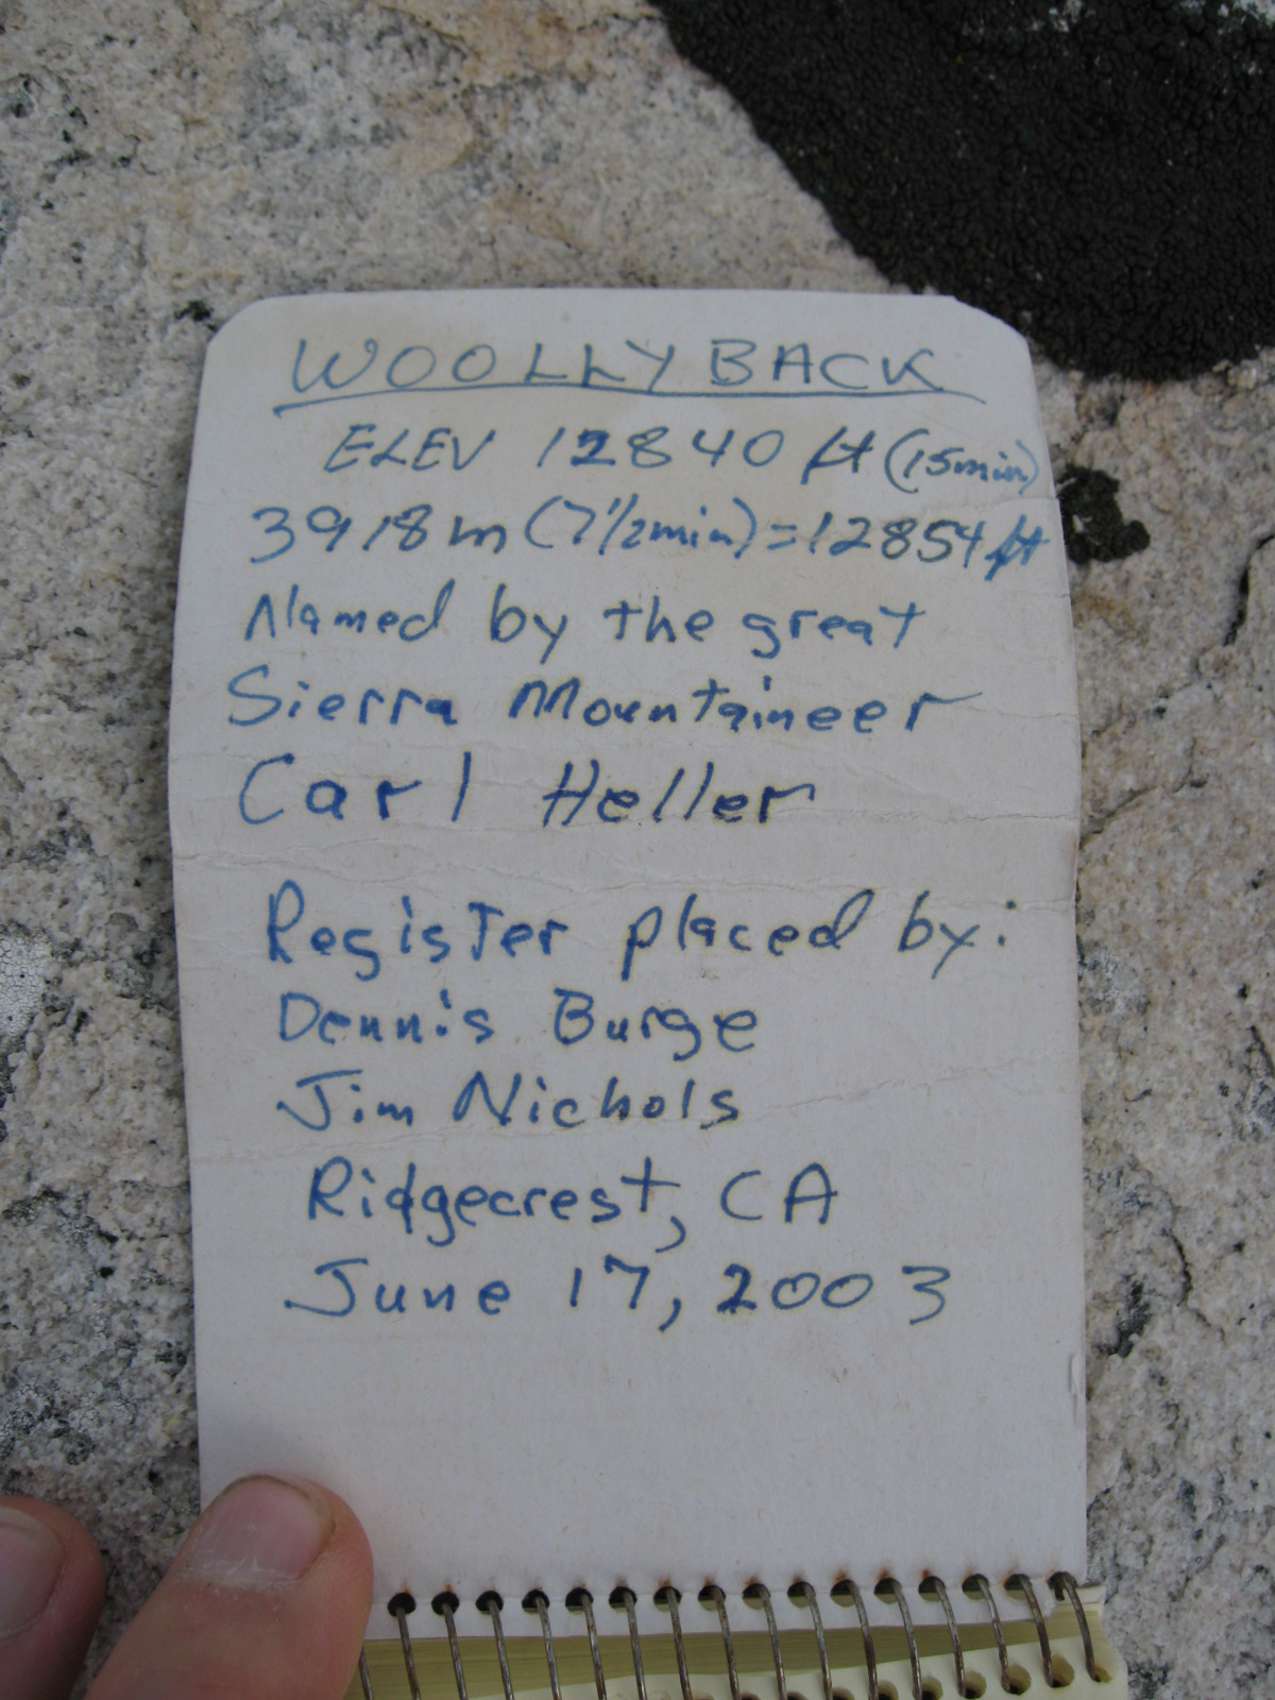 WOOLLYBACK
ELEV 12840 ft (15min)
3918m (7½min) = 12854 ft
Named by the great
Sierra Mountaineer
Carl Heller
Register placed by:
Dennis Burge
Jim Nichols
Ridgecrest, CA
June 17, 2003